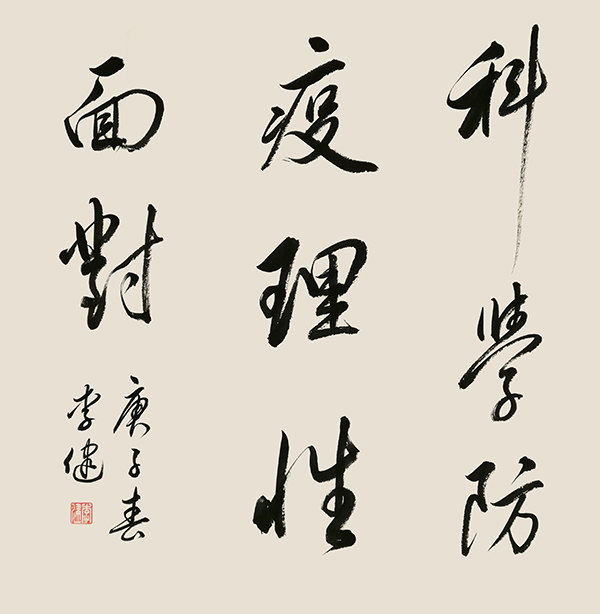 科學防
疫理性
面對
庚子春
李健